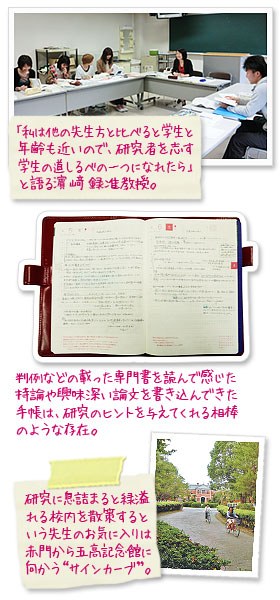 「私は他の先生方と比べると学生と
年齢も近いので、研究者を志す
学生の道しるべの一つになれたら」
と語る濵﨑録准教授。
判例などの載った専門書を読んで感じた
持論や興味深い論文を書き込んできた
手帳は、研究のヒントを与えてくれる相棒
のような存在。
研究に息詰まると緑溢
れる校内を散策すると
いう先生のお気に入りは
赤門から五高記念館に
向かう“サインカーブ”。